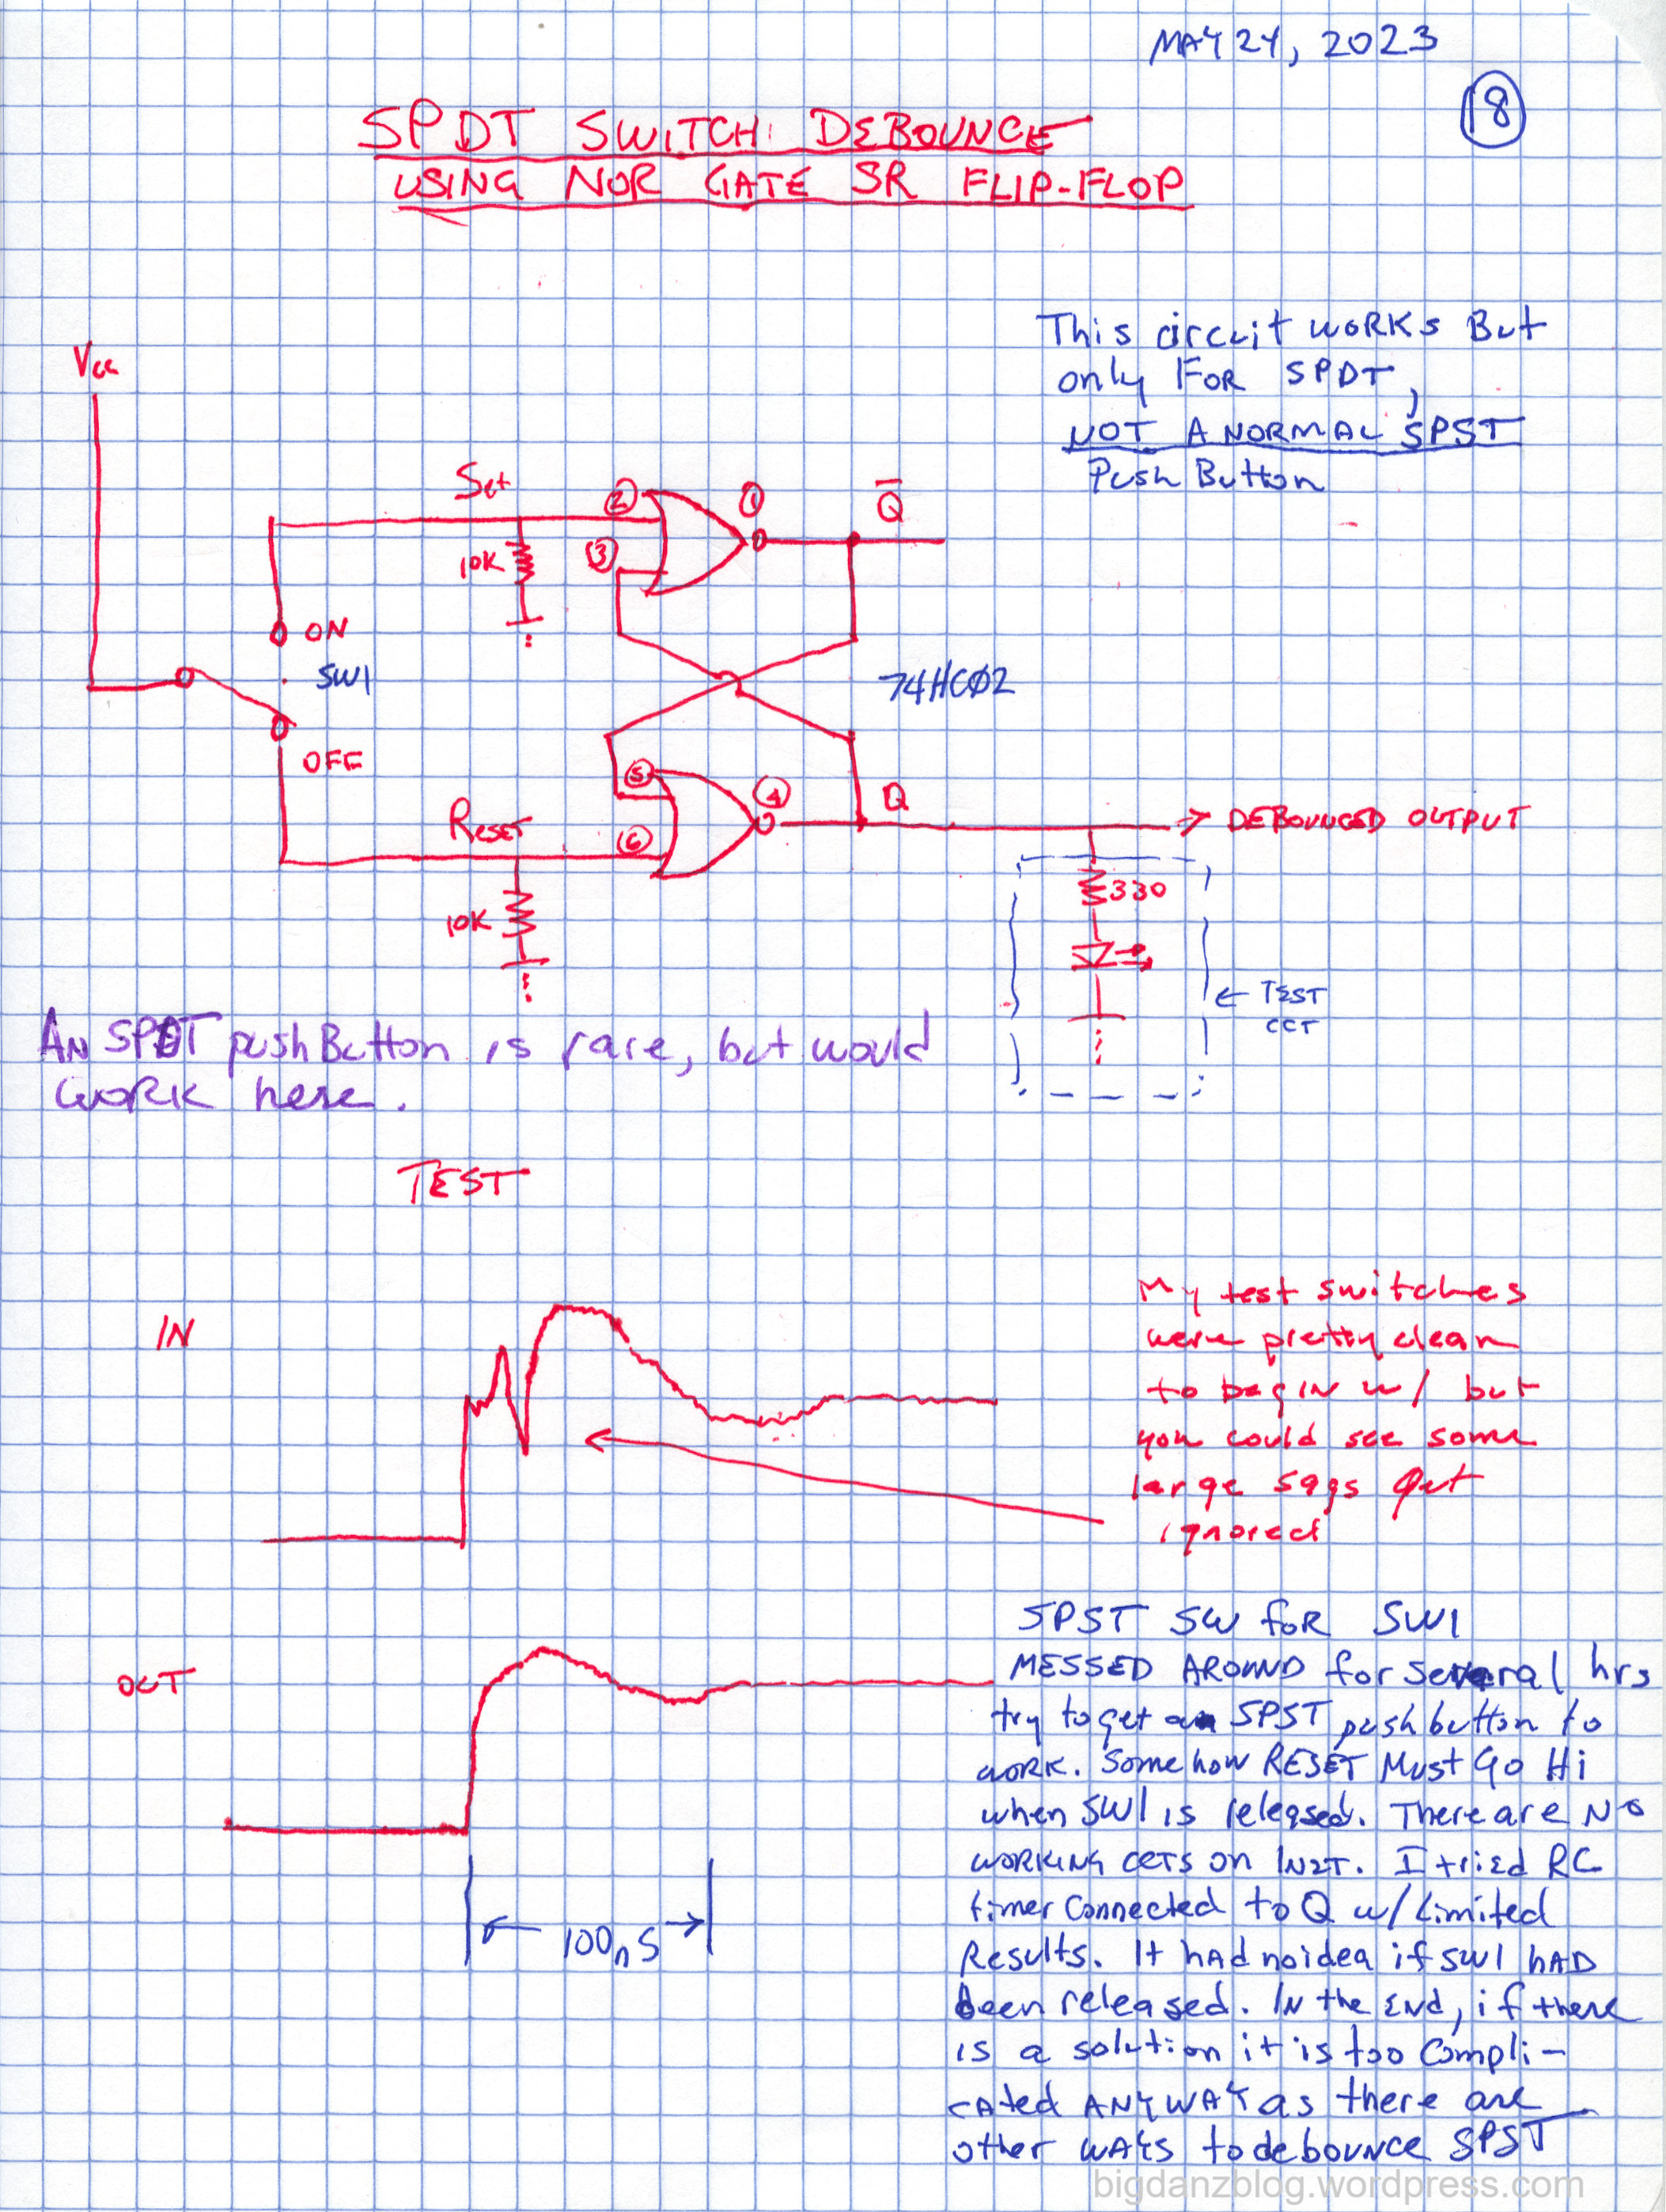 MAY 24, 2023
18
SPDT SWITCH DEBOUNCE
USING NOR GATE SR FLIP-FLOP
This circuit works But
only For SPDT,
NOT A NORMAL SPST
Push Button
Vcc
Set
2
1
Q̅
10K
3
ON
SW1
74HC02
OFF
5
4
Q
Reset
6
DEBOUNCED OUTPUT
10K
330
TEST
CCT
AN SPDT push Button is rare, but would
work here.
TEST
IN
My test switches
were pretty clean
to begin w/ but
you could see some
large sags get
ignored
OUT
100nS
SPST SW for SW1
MESSED AROUND for several hrs
try to get an SPST pushbutton to
work. Somehow RESET Must Go Hi
when SW1 is released. There are No
working CCTS on IN2T. I tried RC
timer Connected to Q w/ Limited
Results. It had no idea if SW1 had
been released. IN the END, if there
is a solution it is too Compli-
cated ANYWAY as there are
other WAYS to debounce SPST
bigdanzblog.wordpress.com